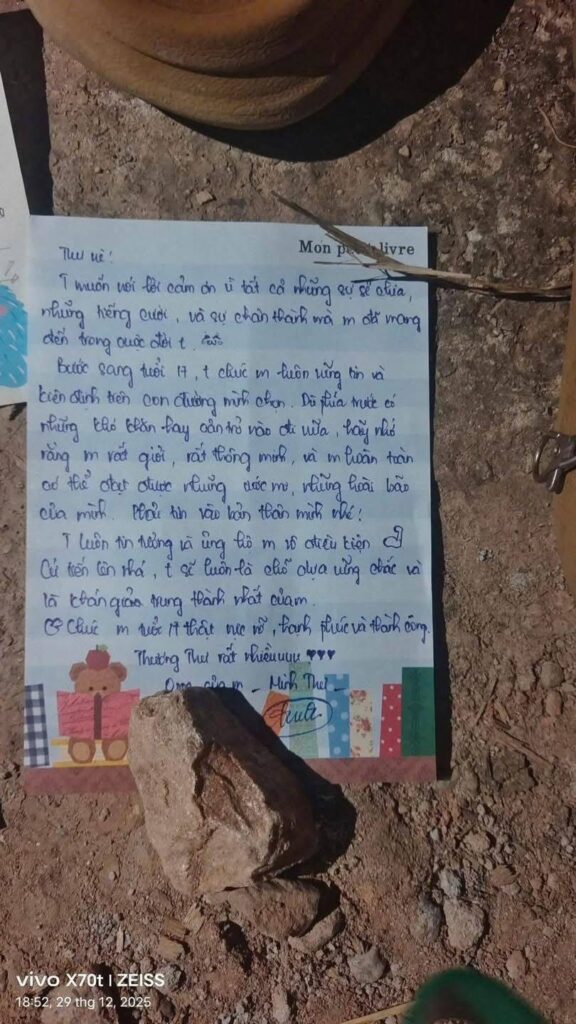 Mon livre
Thư nè!
T muốn nói lời cảm ơn vì tất cả những sự sẻ chia,
những tiếng cười, và sự chân thành mà m đã mang
đến trong cuộc đời t.
Bước sang tuổi 17, t chúc m luôn vững tin và
kiên định trên con đường mình chọn. Dù phía trước có
những khó khăn hay cản trở nào đi nữa, hãy nhớ
rằng m rất giỏi, rất thông minh, và m hoàn toàn
có thể đạt được những ước mơ, những hoài bão
của mình. Phải tin vào bản thân mình nhé!
T luôn tin tưởng và ủng hộ m vô điều kiện
Cứ tiến lên nhá, t sẽ luôn là chỗ dựa vững chắc và
là khán giả trung thành nhất của m.
Chúc m tuổi 17 thật rực rỡ, hạnh phúc và thành công.
Thương Thư rất nhiềuuuu ♥♥♥
của m - Minh Thư -
vivo X70t | ZEISS
18:52, 29 thg 12, 2025